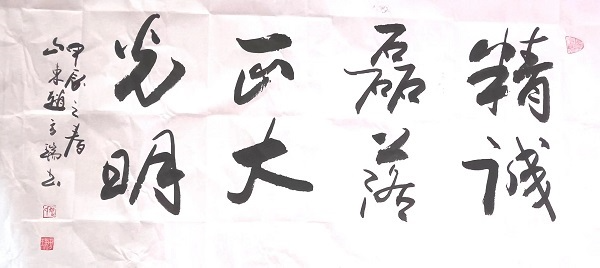 精诚
磊落
正大
光明
甲辰之春
山东赵立瑞书